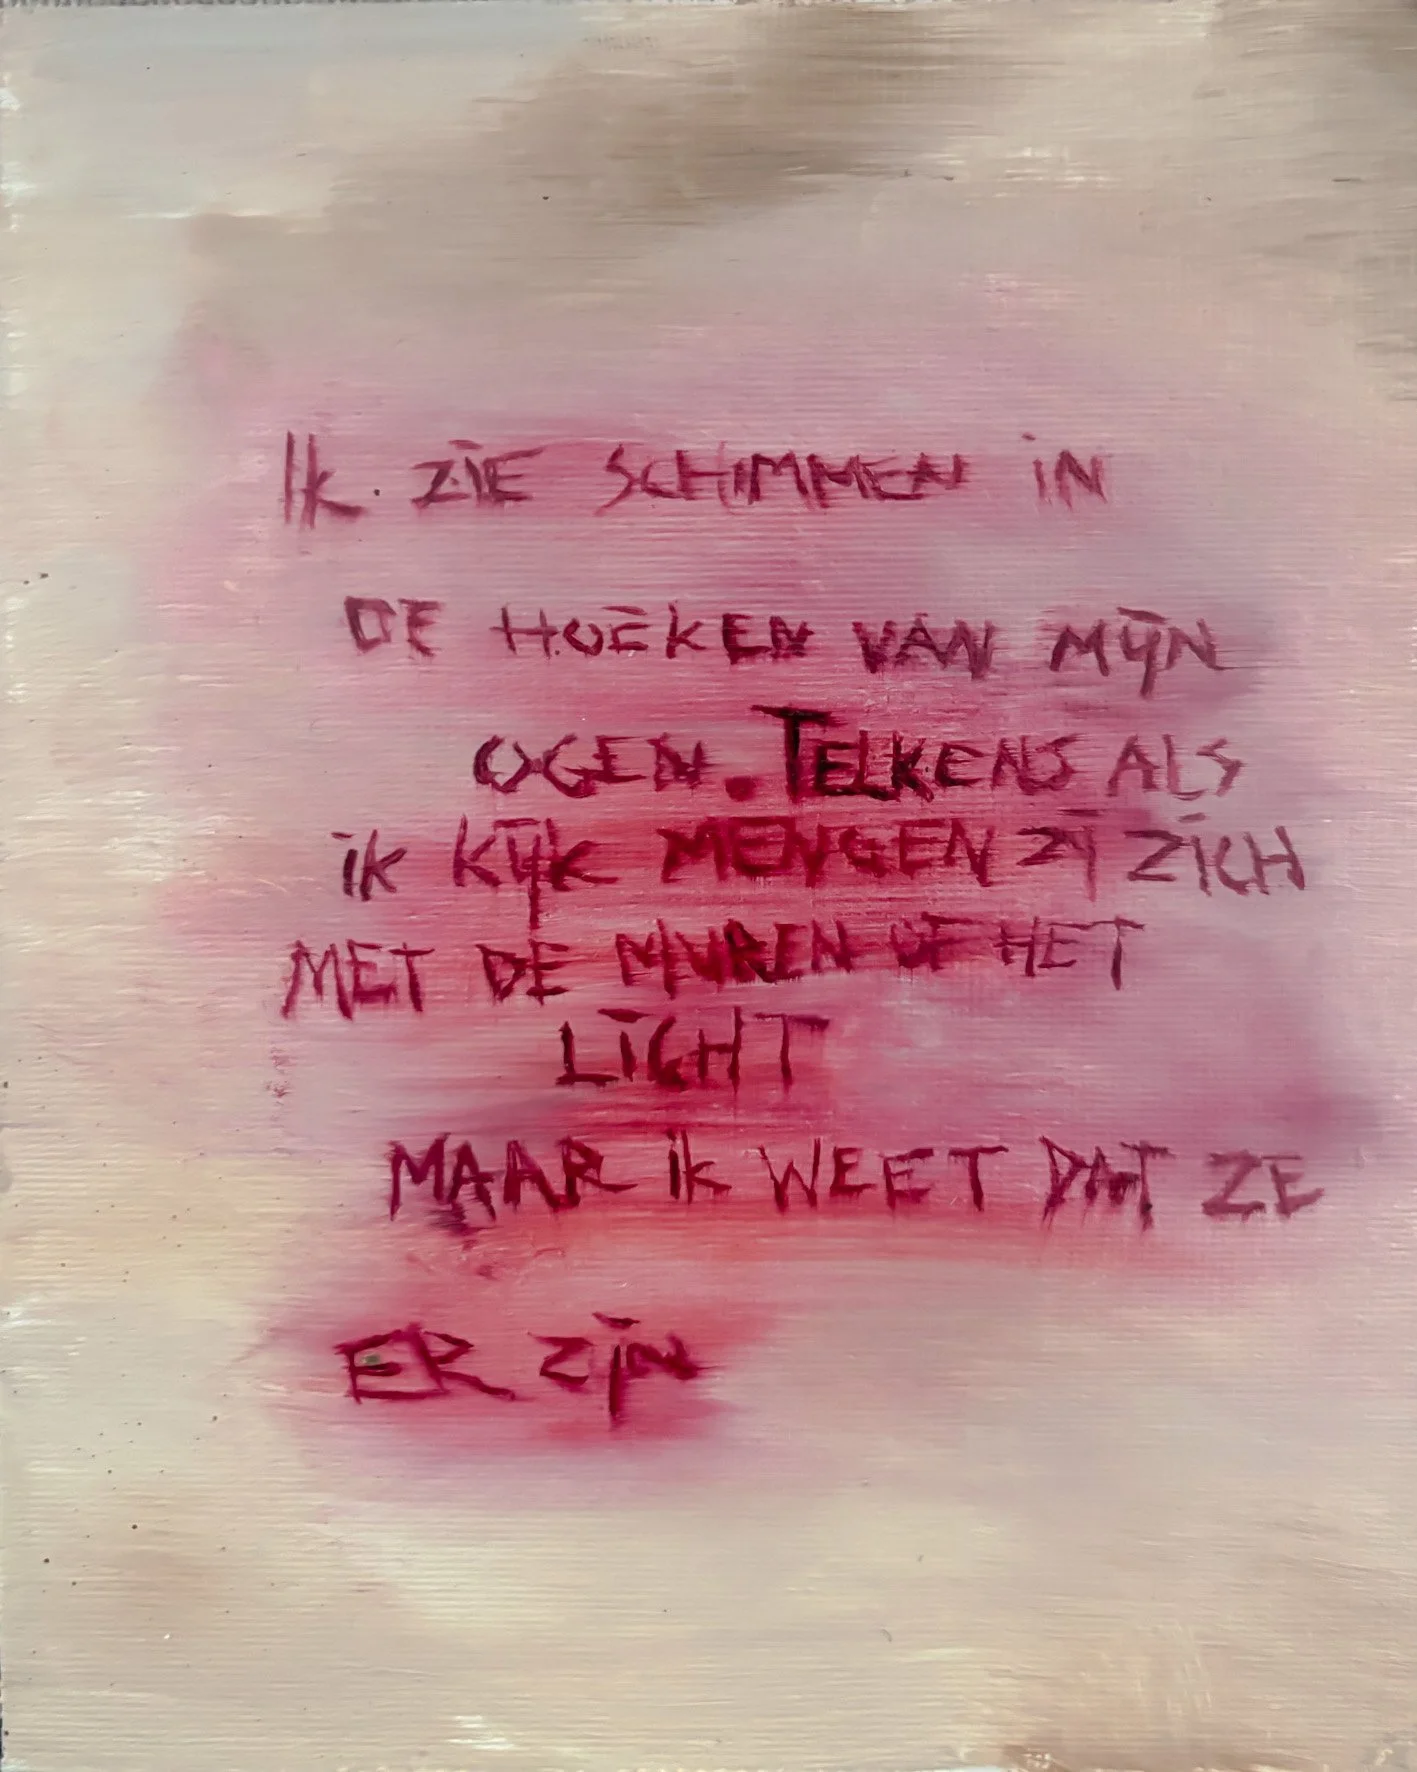 Ik. ZIE SCHIMMEN IN
DE HOEKEN VAN MIJN
OGEN. TELKENS ALS
IK KIJK MENGEN ZIJ ZICH
MET DE MUREN OF HET
LICHT
MAAR IK WEET DAT ZE
ER ZIJN